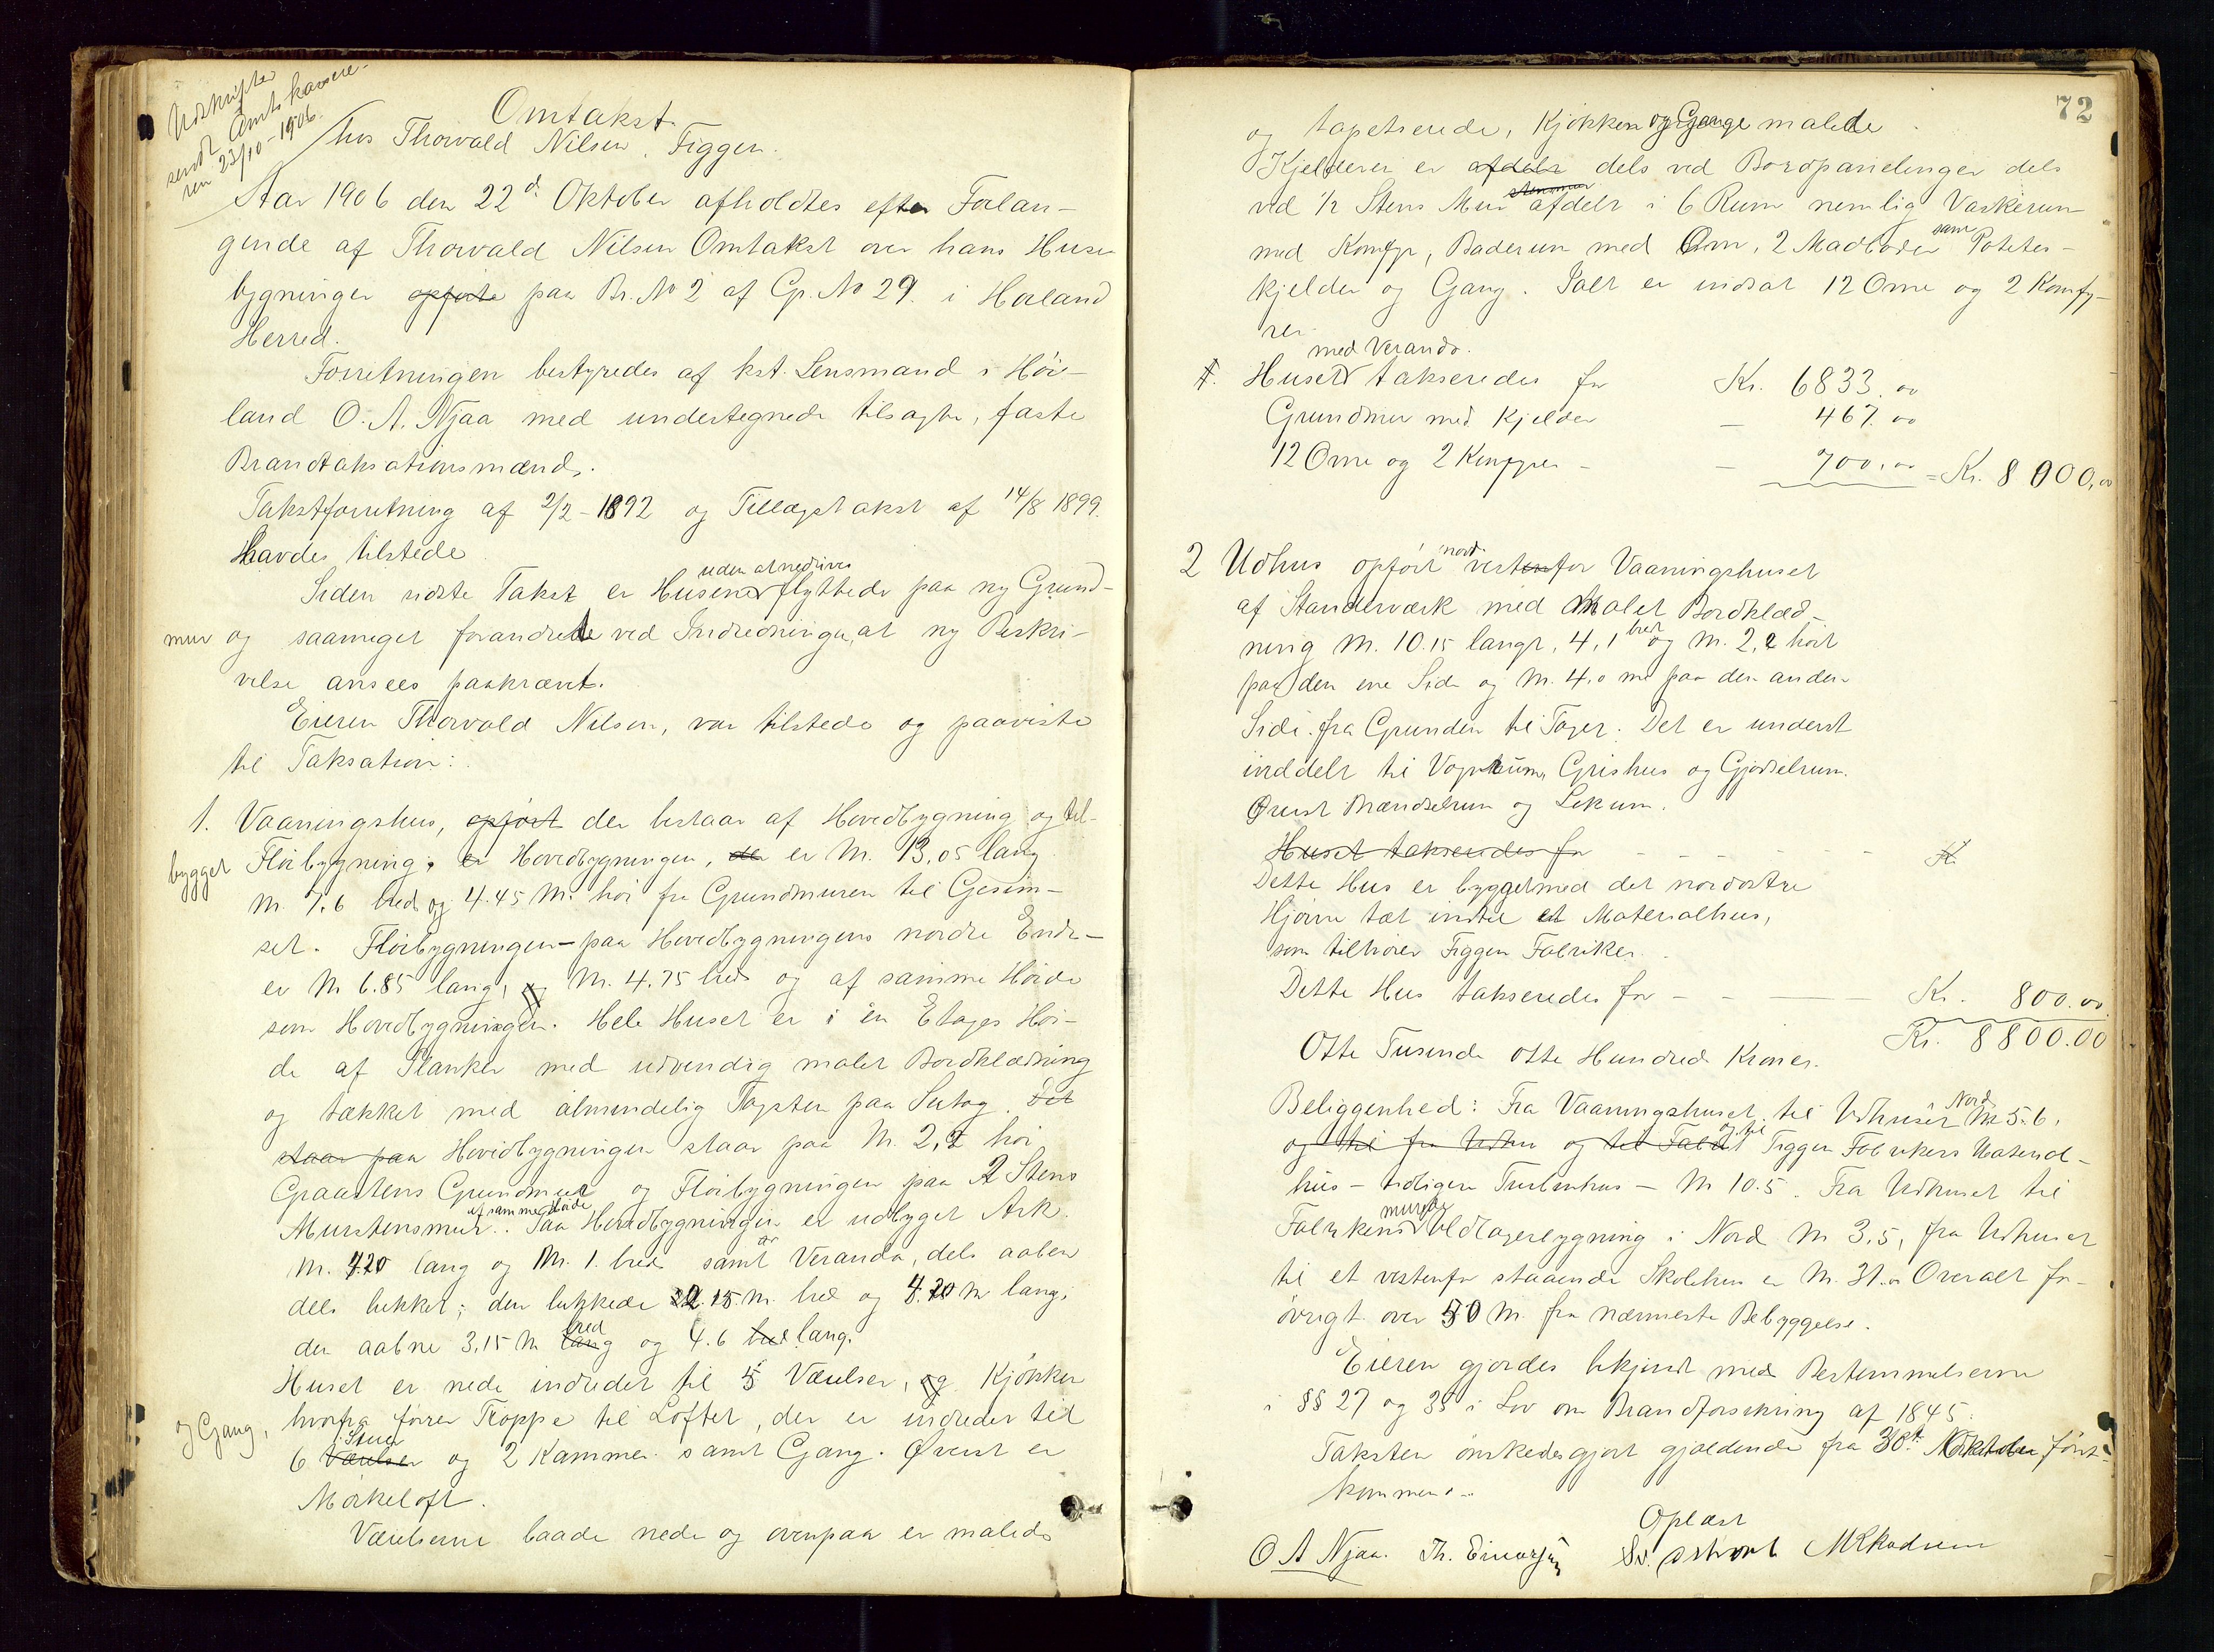 Udskrifter
sendt Amtskassere-
ren 23/10-1906.
Omtakst
hos Thorvald Nilsen, Figgen.
Aar 1906 den 22d Oktober afholdtes efter Forlan-
gende af Thorvald Nilsen Omtakst over hans Huse
bygninger opførte paa Br. No 2 af Gr. No 29. i Høiland
Herred.
Forretningen bestyredes af kst. Lensmand i Høi-
land O. A. Njaa med undertegnede tilsagte, faste
Brandtaksationsmænd.
Takstforretning af 2/2-1892 og Tillægstakst af 14/8 1899.
Havdes tilstede.
uden at nedrives
Siden sidste Takst er Husene flyttede paa ny Grund-
mur og saameget forandrede ved Indredninger, at ny Beskri-
velse ansees paakrævt.
Eieren Thorvald Nilsen, var tilstede og paaviste
til Taksation:
1. Vaaningshus, opført der bestaar af Hovedbygning og til-
bygget Fløibygning, er Hovedbygningen, der er M. 13,05 lang
M. 7.6 bred og 4.45 M. høi fra Grundmuren til Gesim-
set. Fløibygningen - paa Hovedbygningens nordre Ende -
er M 6.85 lang, og M. 4.75 bred og af samme Høide
som Hovedbygningen. Hele Huset er i en Etages Høi-
de af Planker med udvendig malet Bordklædning
og tækket med almindelig Tagsten paa Sutag. Det
staar paa Hovedbygningen staar paa M. 2,2 høi
Graastens Grundmur og Fløibygningen paa 2 Stens
Murstensmur af samme Høide. Paa Hovedbygningen er udbyget Ark
M. 4.20 lang og M. 1. bred samt Veranda, dels aaben
dels lukket; den lukkede 2.15 m. bred og 4.20 m lang;
den aabne 3,15 M lang bred og 4.6 bred lang.
Huset er nede indredet til 5 Værelser, og Kjøkken
og Gang, hvorfra fører Trappe til Loftet, der er indredet til
6 Værelser Stuer og 2 Kammer samt Gang. Øverst er
Mørkeloft.
Værelserne baade nede og ovenpaa er malede
72
og tapetserede, Kjøkken og Gange malede.
Kjelderen er afdelt dels ved Bordpanelinger dels
ved 1/2 Stens Mur stensmur afdelt i 6 Rum nemlig Vaskerum
med Komfyr, Baderum med Ovn, 2 Madboder samt Potetes-
kjelder og Gang. Ialt er indsat 12 Ovne og 2 Komfy-
rer.
med Veranda.
1. Huset takseredes for Kr. 6833.00
Grundmur med Kjelder — 467.00
12 Ovne og 2 Komfyrer — 700.00 = Kr. 8000,00
2 Udhus opført nord vestenfor Vaaningshuset
af Standerværk med malet Bordklæd-
ning M. 10.15 langt, 4,1 bredt og M. 2,2 høit
paa den ene Side og M. 4,0 m paa den anden
Side. fra Grunden til Taget. Det er underst
inddelt til Vognrum, Grishus og Gjødselrum.
Øverst Brændselrum og Lokum.
Huset takseredes for - - - - - - Kr.
Dette Hus er bygget med det nordøstre
Hjørne tæt indtil et Materialhus,
som tilhører Figgen Fabriker.
Dette Hus takseredes for - - — Kr. 800.00
Kr. 8800.00
Otte Tusinde otte Hundrede Kroner.
Beliggenhed: Fra Vaaningshuset til Udhuset Nord M 5.6.
og til fra Udhu og til Fabri og til Figgen Fabrikers Material-
hus - tidligere Turbinhus - M 10.5. Fra Udhuset til
Fabrikens murede Uldlagerbygning i Nord M 3,5, fra Udhuset
til et vestenfor staaende Skolehus er M. 31.0 Overalt for-
øvrigt over 50 M. fra nærmeste Bebyggelse.
Eieren gjordes bekjendt med Bestemmelserne
i §§ 27 og 35 i Lov om Brandforsikring af 1845.
Taksten ønskedes gjort gjældende fra 30te Oktober først-
kommende.
Oplæst
O A Njaa. Th. Einarsen